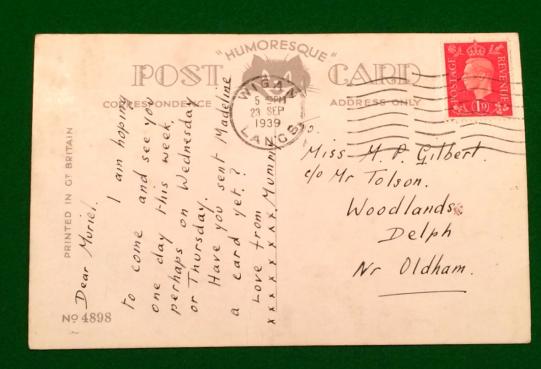 "HUMORESQUE"
POST CARD
CORRESPONDENCE
ADDRESS ONLY
WIGAN
5 PM
23 SEP
1939
LANCS
POSTAGE
REVENUE
1D
PRINTED IN GT BRITAIN
Dear Muriel.
I am hoping
to come and see you
one day this week.
perhaps on Wednesday
or Thursday.
Have you sent Madeline
a card yet.?
Love from Mummy
x x x x x x x x x
To.
Miss M. P. Gilbert.
c/o Mr Tolson.
Woodlands
Delph
Nr Oldham.
No 4898